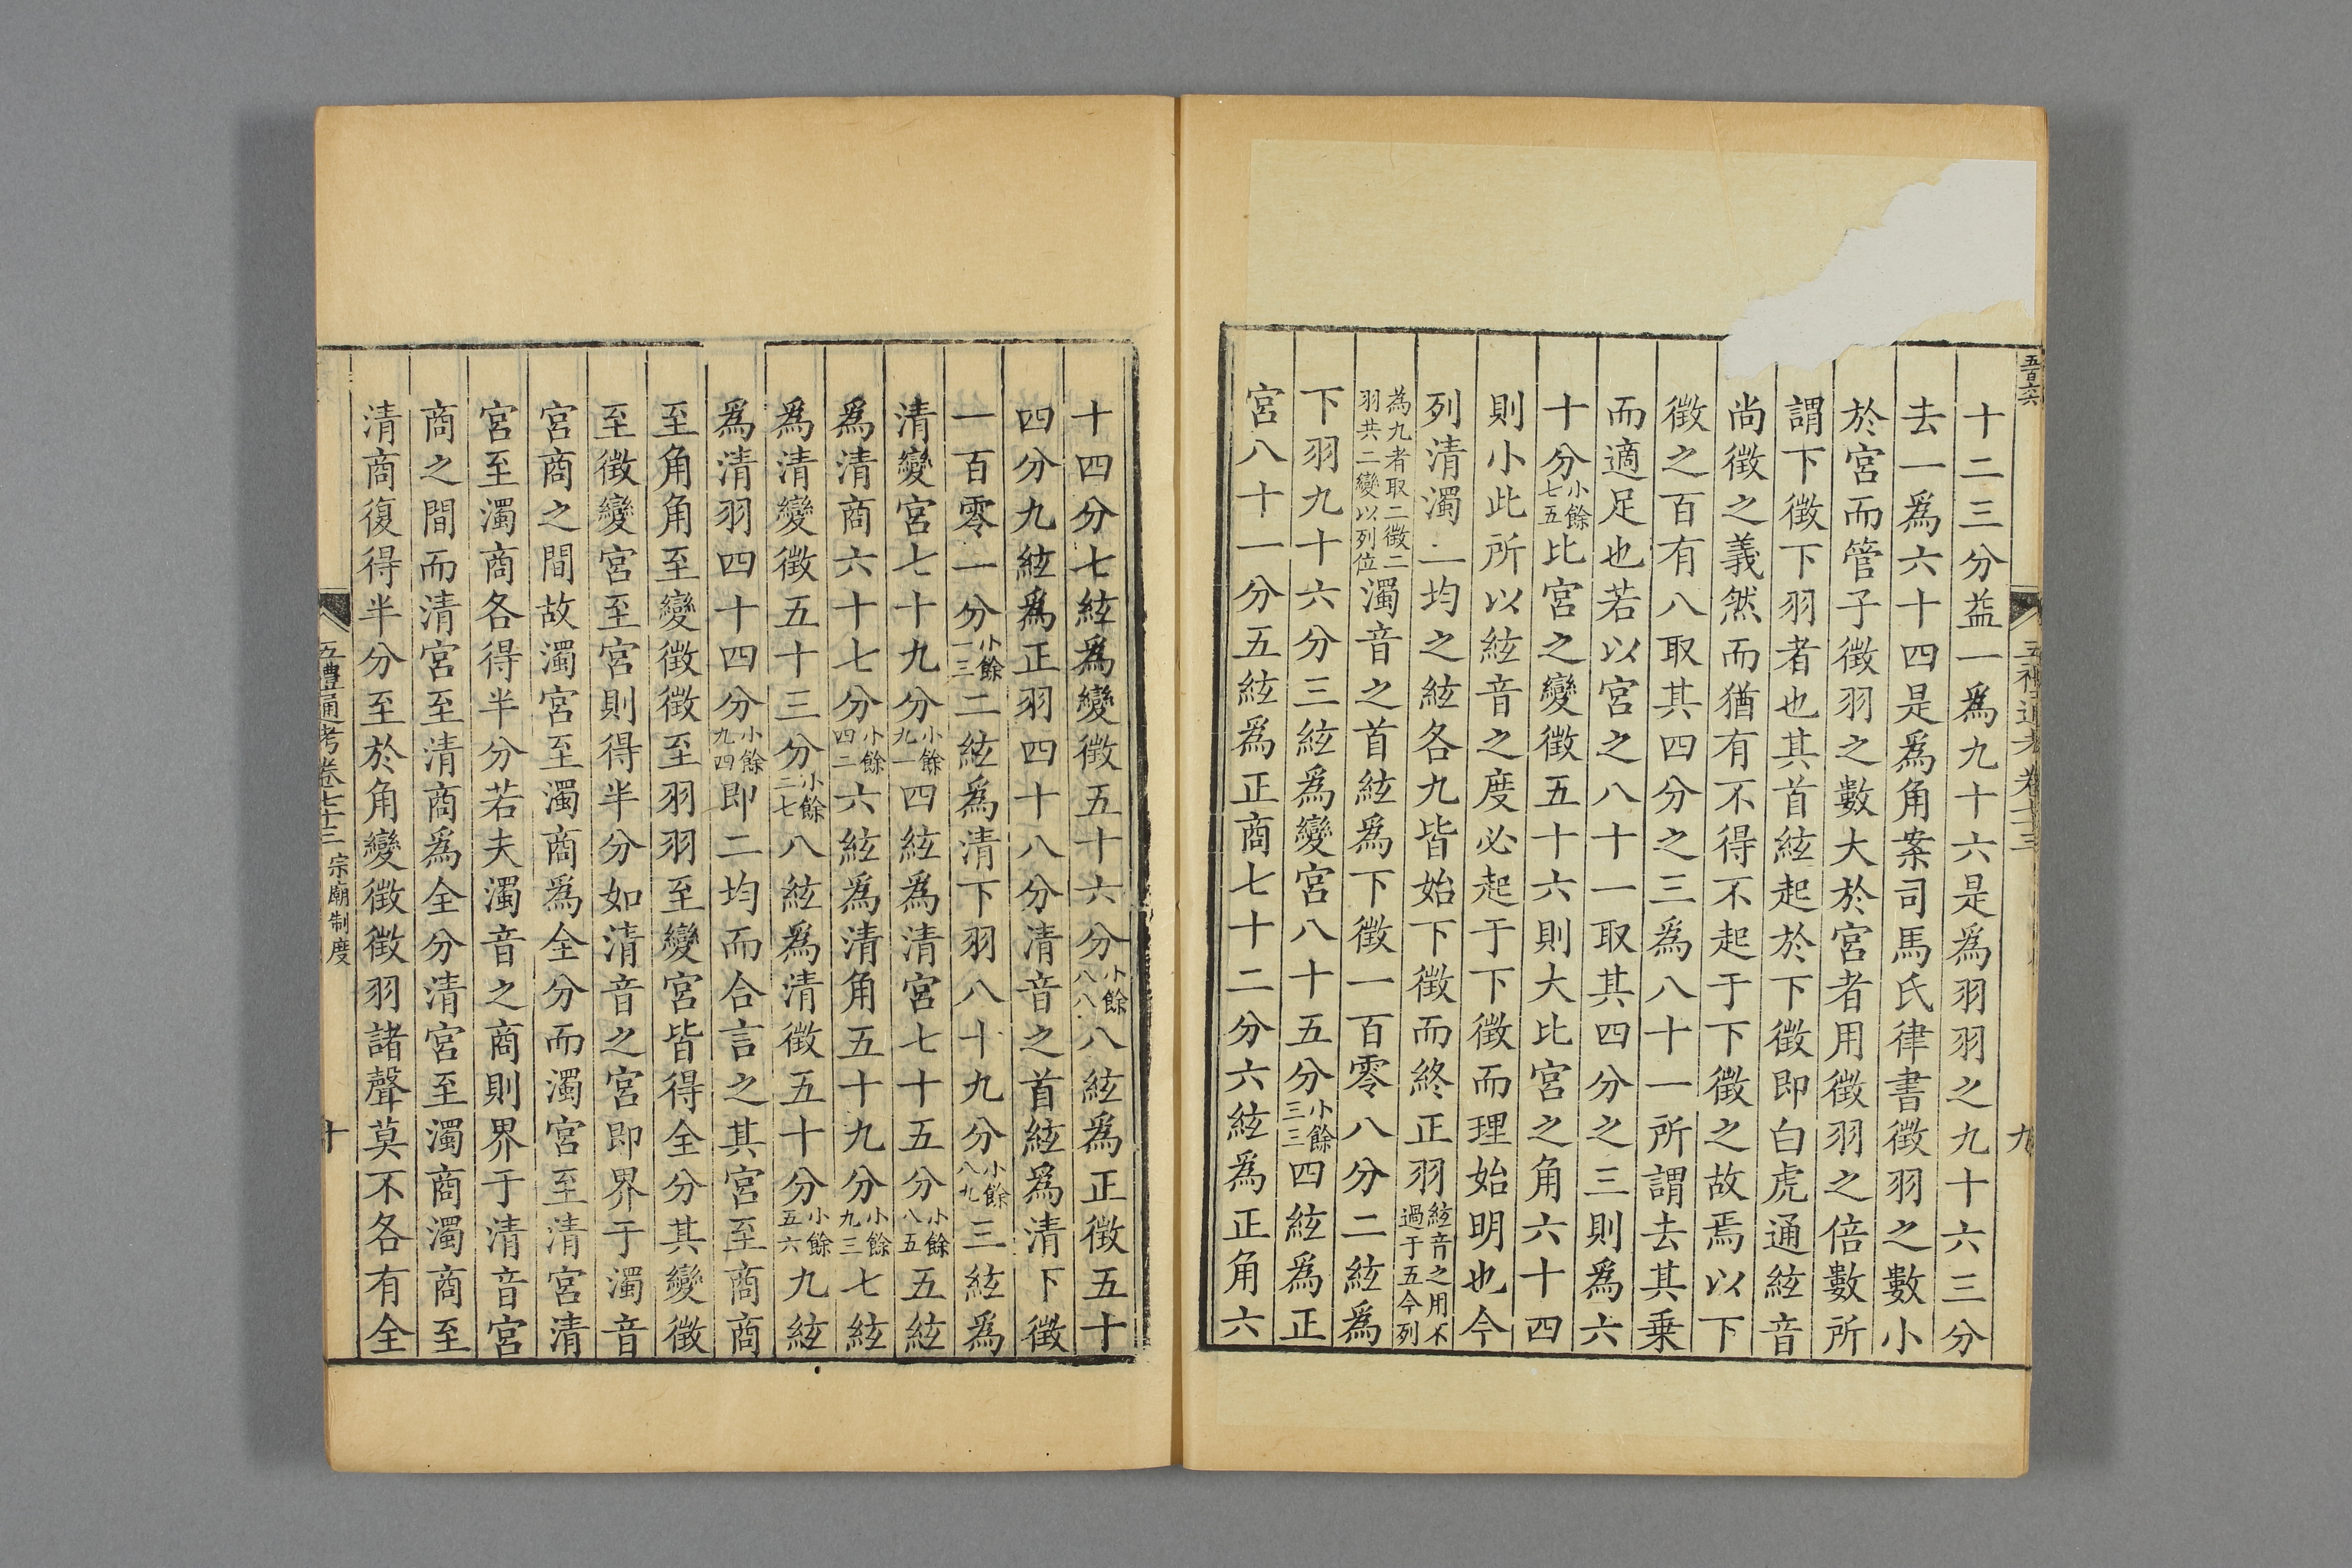 五百六六
五禮通考卷七十三
九
十二三分益一爲九十六是爲羽羽之九十六三分
去一爲六十四是爲角案司馬氏律書徵羽之數小
於宮而管子徵羽之數大於宮者用徵羽之倍數所
謂下徵下羽者也其首絃起於下徵即白虎通絃音
尚徵之義然而猶有不得不起于下徵之故焉以下
徵之百有八取其四分之三爲八十一所謂去其乗
而適足也若以宮之八十一取其四分之三則爲六
十分小餘七五比宮之變徵五十六則大比宮之角六十四
則小此所以絃音之度必起于下徵而理始明也今
列清濁二均之絃各九皆始下徵而終正羽絃音之用不過于五今列
為九者取二徵二羽共二變以列位濁音之首絃爲下徵一百零八分二絃爲
下羽九十六分三絃爲變宮八十五分小餘三三四絃爲正
宮八十一分五絃爲正商七十二分六絃爲正角六
十四分七絃爲變徵五十六分小餘八八八絃爲正徵五十
四分九絃爲正羽四十八分清音之首絃爲清下徵
一百零一分小餘一三二絃爲清下羽八十九分小餘八九三絃爲
清變宮七十九分小餘九一四絃爲清宮七十五分小餘八五五絃
爲清商六十七分小餘四二六絃爲清角五十九分小餘九三七絃
爲清變徵五十三分小餘二七八絃爲清徵五十分小餘五六九絃
爲清羽四十四分小餘九四即二均而合言之其宮至商商
至角角至變徵徵至羽羽至變宮皆得全分其變徵
至徵變宮至宮則得半分如清音之宮即界于濁音
宮商之間故濁宮至濁商爲全分而濁宮至清宮清
宮至濁商各得半分若夫濁音之商則界于清音宮
商之間而清宮至清商爲全分清宮至濁商濁商至
清商復得半分至於角變徵徵羽諸聲莫不各有全
五禮通考卷七十三 宗廟制度
十